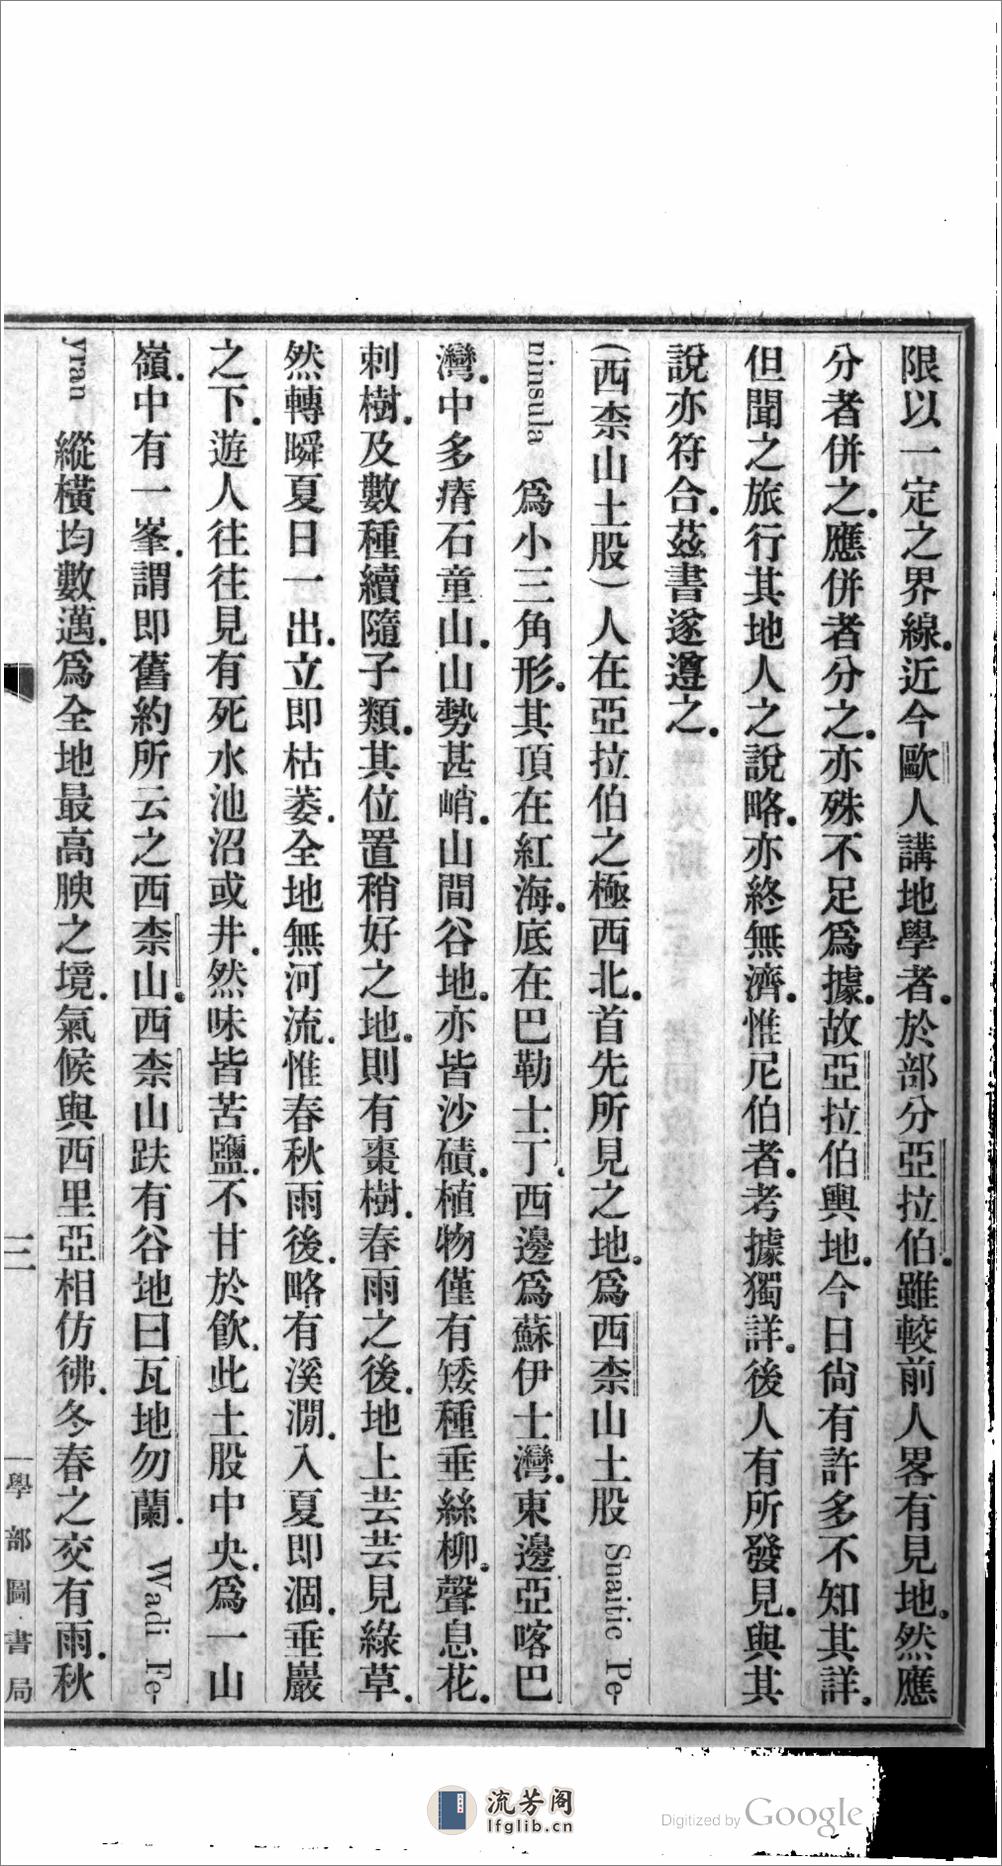 限以一定之界線。近今歐人講地學者。於部分亞拉伯。雖較前人畧有見地。然應
分者併之。應併者分之。亦殊不足爲據。故亞拉伯輿地。今日尙有許多不知其詳。
但聞之旅行其地人之說略。亦終無濟。惟尼伯者。考據獨詳。後人有所發見。與其
說亦符合。茲書遂遵之。
(西柰山土股)人在亞拉伯之極西北。首先所見之地。爲西柰山土股 Snaitic Pe-
ninsula 爲小三角形。其頂在紅海。底在巴勒士丁。西邊爲蘇伊士灣。東邊亞喀巴
灣。中多瘠石童山。山勢甚峭。山間谷地。亦皆沙磧。植物僅有矮種垂絲柳。聲息花。
刺樹。及數種續隨子類。其位置稍好之地。則有棗樹。春雨之後。地上芸芸見綠草。
然轉瞬夏日一出。立即枯萎。全地無河流。惟春秋雨後。略有溪澗。入夏即涸。垂巖
之下。遊人往往見有死水池沼或井。然味皆苦鹽。不甘於飮。此土股中央。爲一山
嶺。中有一峯。謂即舊約所云之西柰山。西柰山趺有谷地曰瓦地勿蘭。 Wadi Fe-
yran 縱橫均數邁。爲全地最高腴之境。氣候與西里亞相仿彿。冬春之交有雨。秋
三
學部圖書局
流芳阁
lfglib.cn
Digitized by Google